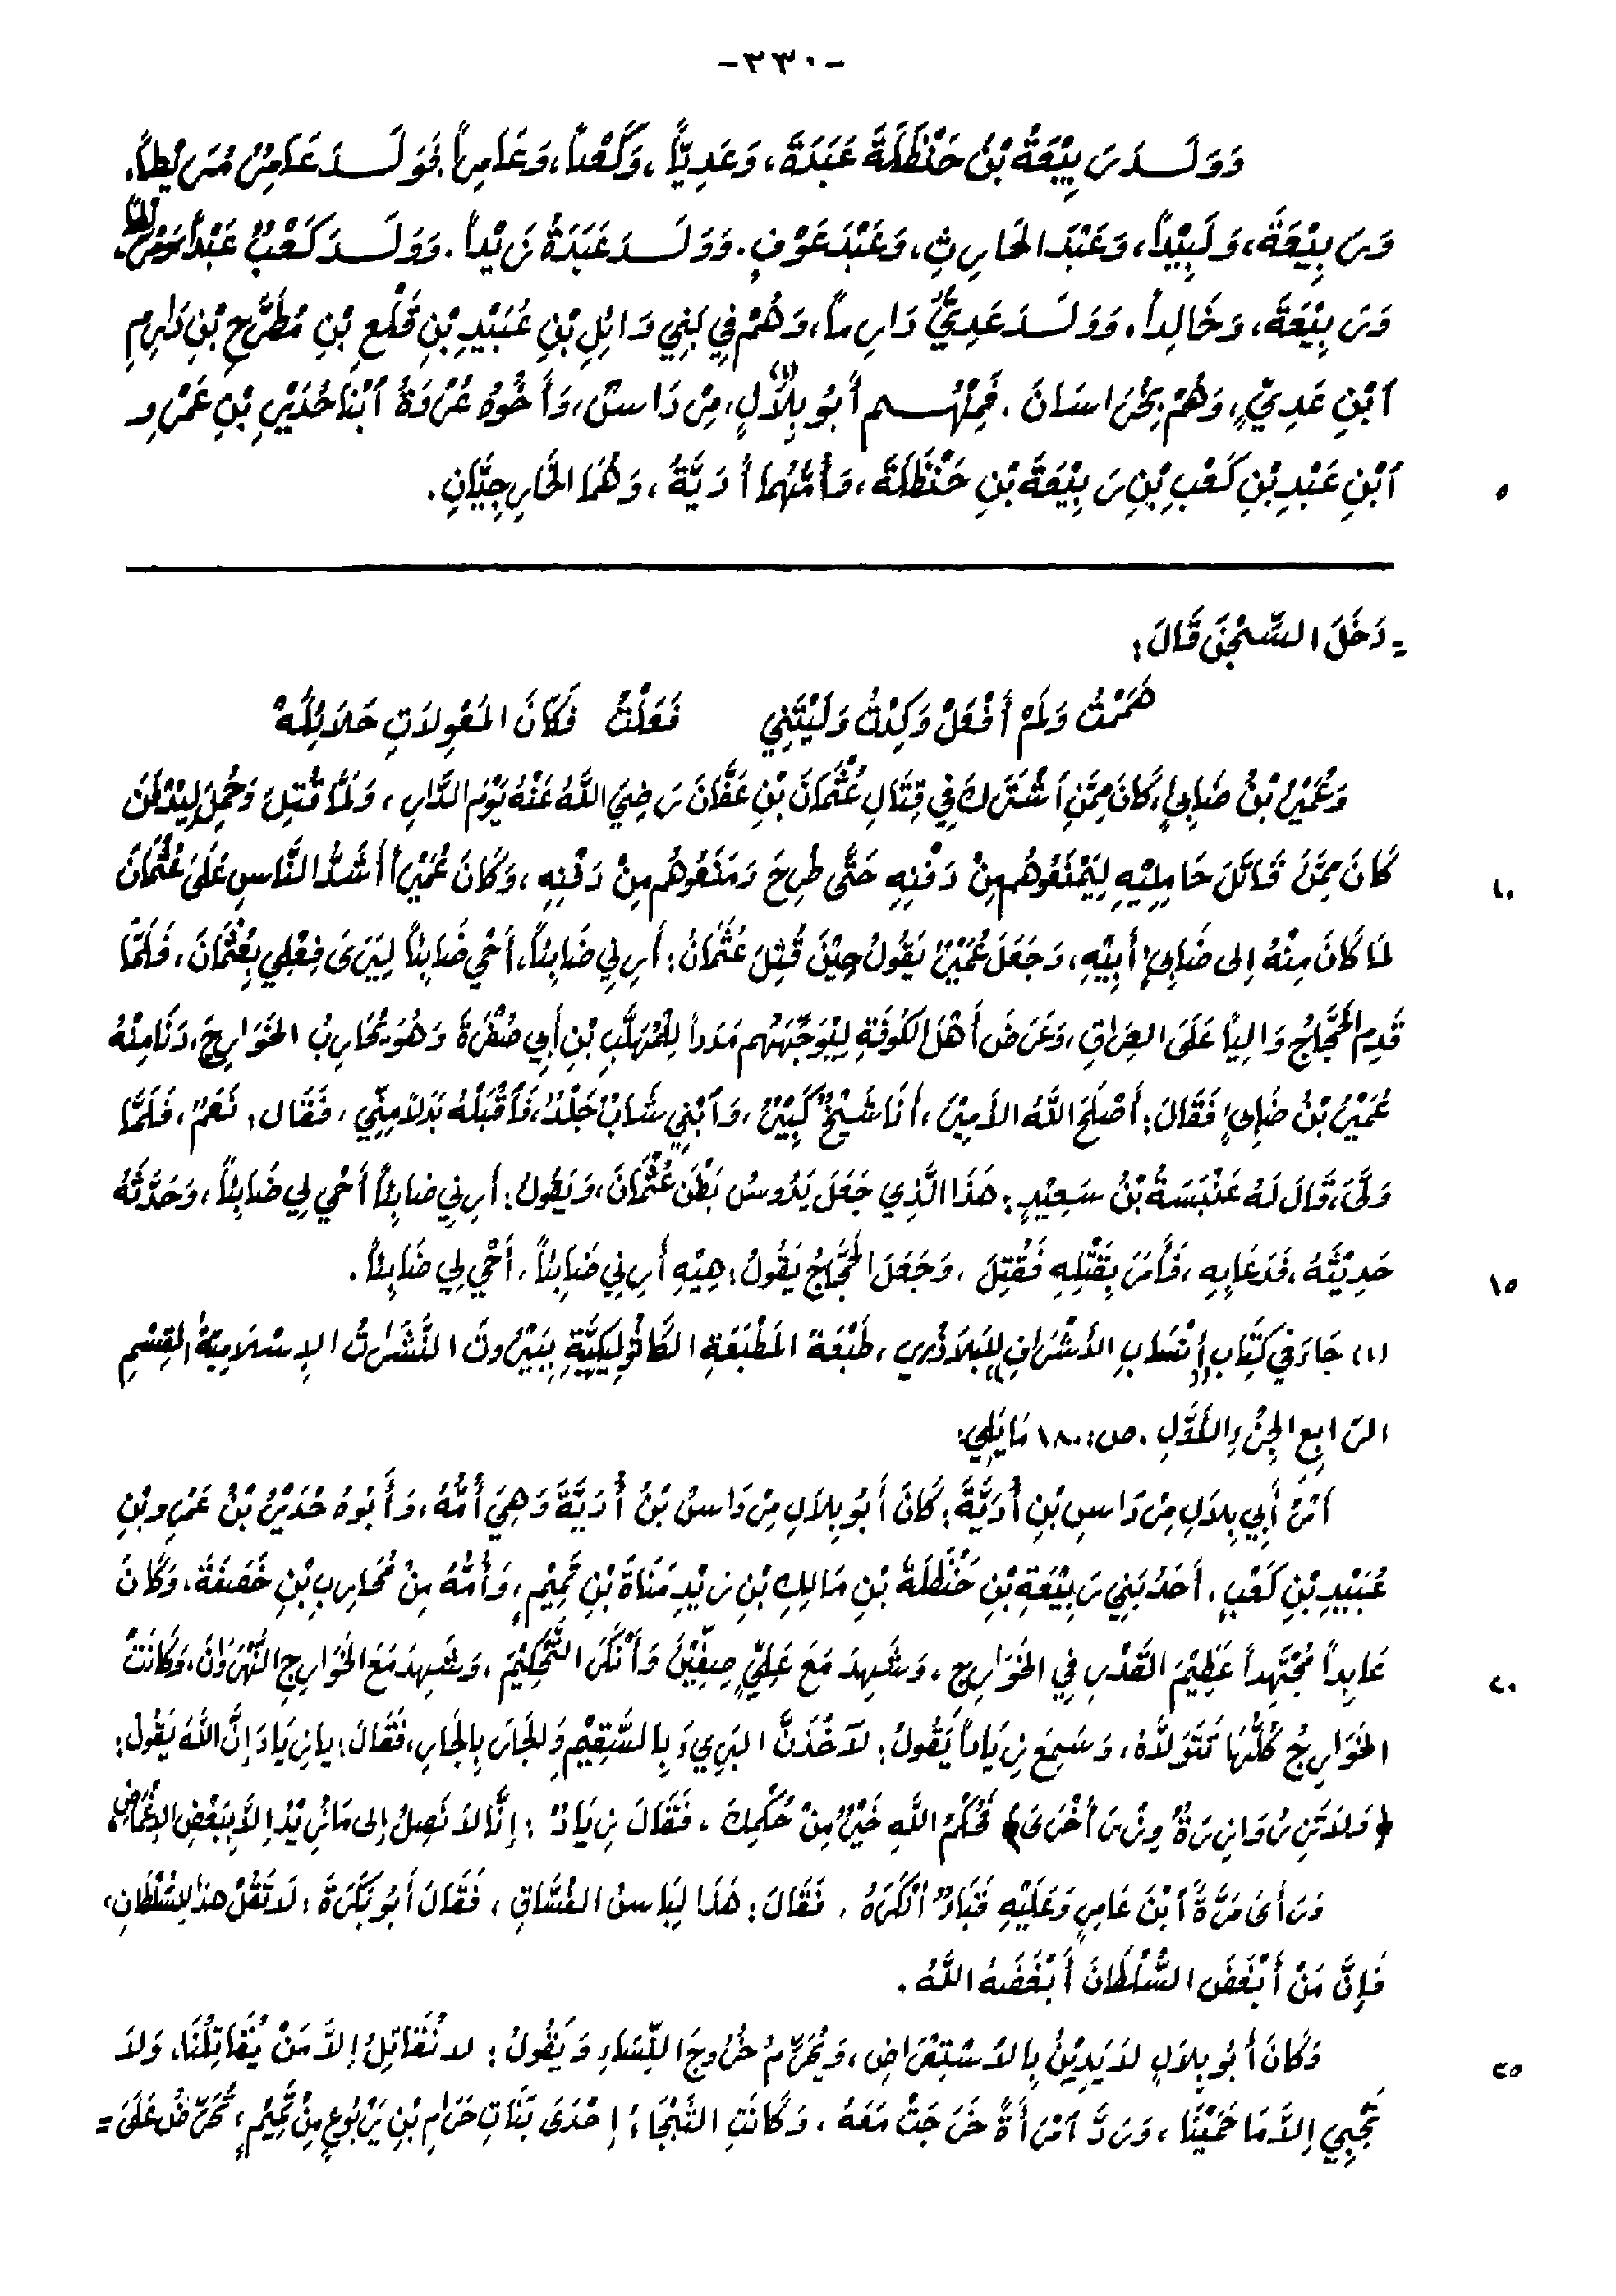 -٣٣٠-
وَوَلَــدَ رَبِيْعَةُ بْنُ حَنْظَلَةَ عَبَدَةَ، وَعَدِيّاً، وَكَعْباً، وَعَامِراً. فَوَلَــدَ عَامِرٌ مُرَيْطاً.
وَرَبِيْعَةَ، وَلَبِيْداً، وَعَبْدَ الحَارِثِ، وَعَبْدَ عَوْفٍ. وَوَلَــدَ عَبَدَةُ زَيْداً. وَوَلَــدَ كَعْبٌ عَبْداً،
وَرَبِيْعَةَ، وَخَالِداً. وَوَلَــدَ عَدِيٌّ دَارِماً، وَهُمْ فِي بَنِي وَائِلِ بْنِ عُبَيْدِ بْنِ قَلْعِ بْنِ مُطَرَّحِ بْنِ دَارِمِ
ٱبْنِ عَدِيٍّ، وَهُمْ بِخُرَاسَانَ. فَمِنْهُــم أَبُو بِلَالٍ(١)، مِرْدَاسٌ، وَأَخُوهُ عُرْوَةُ ٱبْنَا حُدَيْرِ بْنِ عَمْرِو
ٱبْنِ عَبْدِ بْنِ كَعْبِ بْنِ رَبِيْعَةَ بْنِ حَنْظَلَةَ، وَأُمُّهُمَا أُدَيَّةُ، وَهُمَا الخَارِجِيَّانِ. ٥
= دَخَلَ السِّجْنَ قَالَ:
هَمَمْتُ وَلَمْ أَفْعَلْ وَكِدْتُ وَلَيْتَنِي فَعَلْتُ فَكَانَ المُعْوِلَاتِ حَلَائِلُهْ
وَعُمَيْرُ بْنُ ضَابِئٍ، كَانَ مِمَّنِ ٱشْتَرَكَ فِي قِتَالِ عُثْمَانَ بْنِ عَفَّانَ رَضِيَ اللَّهُ عَنْهُ يَوْمَ الدَّارِ، وَلَمَّا قُتِلَ وَحُمِلَ لِيُدْفَنَ
كَانَ مِمَّنْ قَاتَلَ حَامِلِيْهِ لِيَمْنَعُوهُم مِنْ دَفْنِهِ حَتَّى طُرِحَ وَمَنَعُوهُم مِنْ دَفْنِهِ، وَكَانَ عُمَيْراً أَشَدَّ النَّاسِ عَلَى عُثْمَانَ ١٠
لِمَا كَانَ مِنْهُ إِلى ضَابِئٍ أَبِيْهِ، وَجَعَلَ عُمَيْرٌ يَقُولُ حِيْنَ قُتِلَ عُثْمَانُ: أَرِنِي ضَابِئاً، أَحْيِ ضَابِئاً لِيَرَى فِعْلِي بِعُثْمَانَ، فَلَمَّا
قَدِمَ الحَجَّاجُ وَالِياً عَلَى العِرَاقِ، وَعَرَضَ أَهْلَ الكُوفَةِ لِيُوَجِّهَهُم مَدَداً لِلْمُهَلَّبِ بْنِ أَبِي صُفْرَةَ وَهُوَ يُحَارِبُ الخَوَارِجَ، دَنَا مِنْهُ
عُمَيْرُ بْنُ ضَابِئٍ فَقَالَ: أَصْلَحَ اللَّهُ الأَمِيْرَ، أَنَا شَيْخٌ كَبِيْرٌ، وَٱبْنِي شَابٌّ جَلْدٌ، فَٱقْبَلْهُ بَدَلاً مِنِّي، فَقَال: نَعَمْ، فَلَمَّا
وَلَّى، قَالَ لَهُ عَنْبَسَةُ بْنُ سَعِيْدٍ: هَذَا الَّذِي جَعَلَ يَدُوسُ بَطْنَ عُثْمَانَ، وَيَقُولُ: أَرِنِي ضَابِئاً أَحْيِ لِي ضَابِئاً، وَحَدَّثَهُ
حَدِيْثَهُ، فَدَعَا بِهِ، فَأَمَرَ بِقَتْلِهِ فَقُتِلَ، وَجَعَلَ الحَجَّاجُ يَقُولُ: هِيْهِ أَرِنِي ضَابِئاً، أَحْيِ لِي ضَابِئاً. ١٥
(١) جَاءَ فِي كِتَابِ «أَنْسَابِ الأَشْرَافِ» لِلْبَلَاذُرِي، طَبْعَةُ المَطْبَعَةِ الكَاثُولِيكِيَّةِ بِبَيْرُوتَ النَّشَرَاتُ الإِسْلَامِيَّةُ القِسْمِ
الرَّابِعِ الجُزْءِ الأَوَّلِ. ص: ١٨٠ مَا يَلِي:
أَمْرُ أَبِي بِلَالِ مِرْدَاسِ بْنِ أُدَيَّةَ: كَانَ أَبُو بِلَالِ مِرْدَاسُ بْنُ أُدَيَّةَ وَهِيَ أُمُّهُ، وَأَبُوهُ حُدَيْرُ بْنُ عَمْرِو بْنِ
عُبَيْدِ بْنِ كَعْبٍ، أَحَدُ بَنِي رَبِيْعَةِ بْنِ حَنْظَلَةَ بْنِ مَالِكِ بْنِ زَيْدِ مَنَاةَ بْنِ تَمِيْمٍ، وَأُمُّهُ مِنْ مُحَارِبِ بْنِ خَصَفَةَ، وَكَانَ
عَابِداً مُجْتَهِداً عَظِيْمَ القَدْرِ فِي الخَوَارِجِ، وَشَهِدَ مَعَ عَلِيٍّ صِفِّيْنَ وَأَنْكَرَ التَّحْكِيْمَ، وَشَهِدَ مَعَ الخَوَارِجِ النَّهْرَوَانَ، وَكَانَتْ ٢٠
الخَوَارِجُ كُلُّهَا تَتَوَلَّاهُ، وَسَمِعَ زِيَاداً يَقُولُ: لَآخُذَنَّ البَرِيءَ بِالسَّقِيْمِ وَالجَارَ بِالجَارِ، فَقَالَ: يا زِيَادَ إِنَّ اللَّهَ يَقُولُ:
﴿وَلَا تَزِرُ وَازِرَةٌ وِزْرَ أُخْرَى﴾ فَحُكْمُ اللَّهِ خَيْرٌ مِنْ حُكْمِكَ، فَقَالَ زِيَادٌ: إِنَّا لَا نَصِلُ إِلى مَا نُرِيْدُ إِلاَّ بِبَعْضِ الإِغْمَاضِ
وَرَأَى مَرَّةً ٱبْنَ عَامِرٍ وَعَلَيْهِ قَبَاءٌ أَنْكَرَهُ، فَقَالَ: هَذَا لِبَاسُ الفُسَّاقِ، فَقَالَ أَبُو بَكَرَةَ: لَا تَقُلْ هذا لِلسُّلْطَانِ،
فَإِنَّ مَنْ أَبْغَضَ السُّلْطَانَ أَبْغَضَهُ اللَّهُ.
وَكَانَ أَبُو بِلَالٍ لَا يَدِيْنُ بِالاَسْتِعْرَاضِ، وَيُحَرِّمُ خُرُوجَ النِّسَاءِ وَيَقُولُ: لا نُقَاتِلُ إِلاَّ مَنْ يُقَاتِلُنَا، وَلَا ٢٥
نَجْبِي إِلاَّ مَا حَمَيْنَا، وَرَدَّ ٱمْرَأَةً خَرَجَتْ مَعَهُ، وَكَانَتِ الثَّبْجَاءُ إِحْدَى بَنَاتِ حَرَامِ بْنِ يَرْبُوعٍ مِنْ تَمِيْمٍ، تُحَرِّضُ عَلَى =